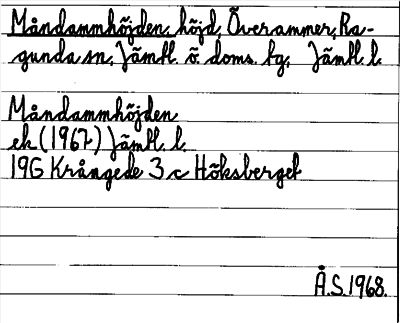 Måndammhöjden, höjd, Överammer, Ra-
gunda sn, Jämtl. ö. doms. tg. Jämtl. l.
Måndammhöjden
ek (1967) Jämtl. l.
19G Krångede 3 c Höksberget
Å.S. 1968.